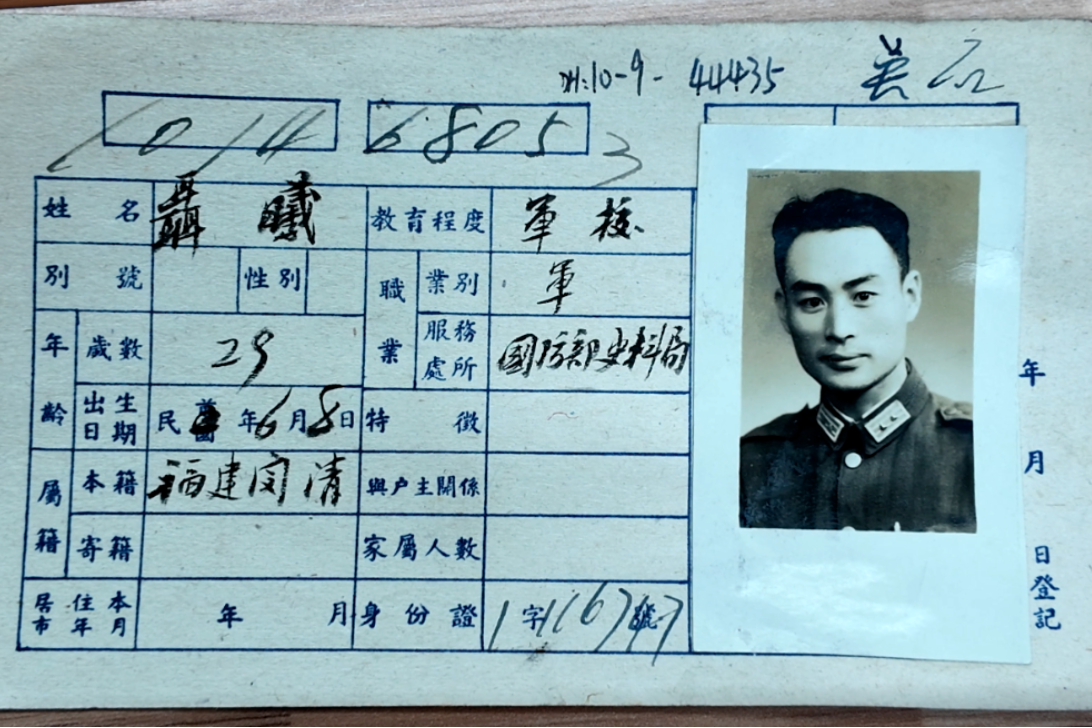 44435
1014 68053
姓名 聶曦 教育程度 軍校
別號 性別 職業 業別 軍
年齡 歲數 29 服務處所 國防部史料局
出生日期 民國 年6月8日 特徵
屬籍 本籍 福建閩清 與户主關係
寄籍 家屬人數
居住本市年月 年 月 身份證 字 號
年 月 日登記